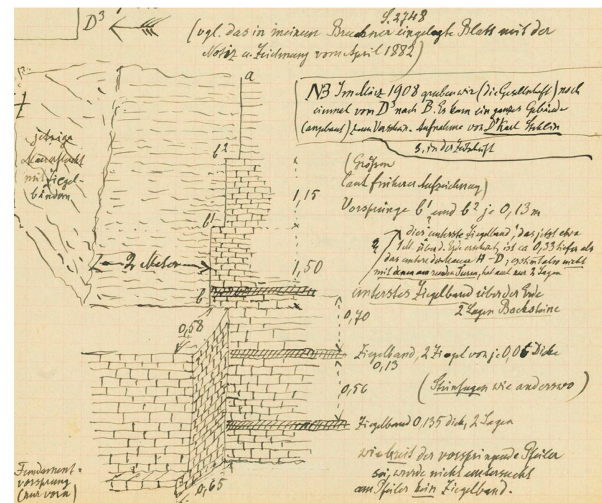 S. 2748
D³
(vgl. das in meinem Bruckner eingelegte Blatt mit der
Notiz u. Zeichnung vom April 1882)
a
NB Im März 1908 graben wir (die Gesellschaft) noch
einmal von D³ nach B. Es kam ein ganzes Gebäude
(angebaut) zum Vorschein. Aufnahme von Dr Karl Stehlin
s. in der Zeitschrift
jetzige
mit Ziegel-
bändern
b²
(Größen
laut früherer Aufzeichnung)
1,15
Vorsprünge b¹ und b² je 0,13 m
b¹
dies unterste Ziegelband, das jetzt etwa
ist ca 0,33 tiefer als
das untere der A-D; es nicht
mit dem am runden Turm, hat auch nur 2 Lagen
2 Meter
1,50
b
unterstes Ziegelband über der Erde
2 Lagen Backsteine
0,70
0,58
Ziegelband, 2 Ziegel von je 0,06 Dicke
0,13
0,56
(Steinfugen wie anderswo)
Ziegelband 0,135 dick, 2 Lagen
wie breit der vorspringende Pfeiler
sei, wurde nicht untersucht
am Pfeiler kein Ziegelband.
Fundament-
vorsprung
(nur vorn)
0,65